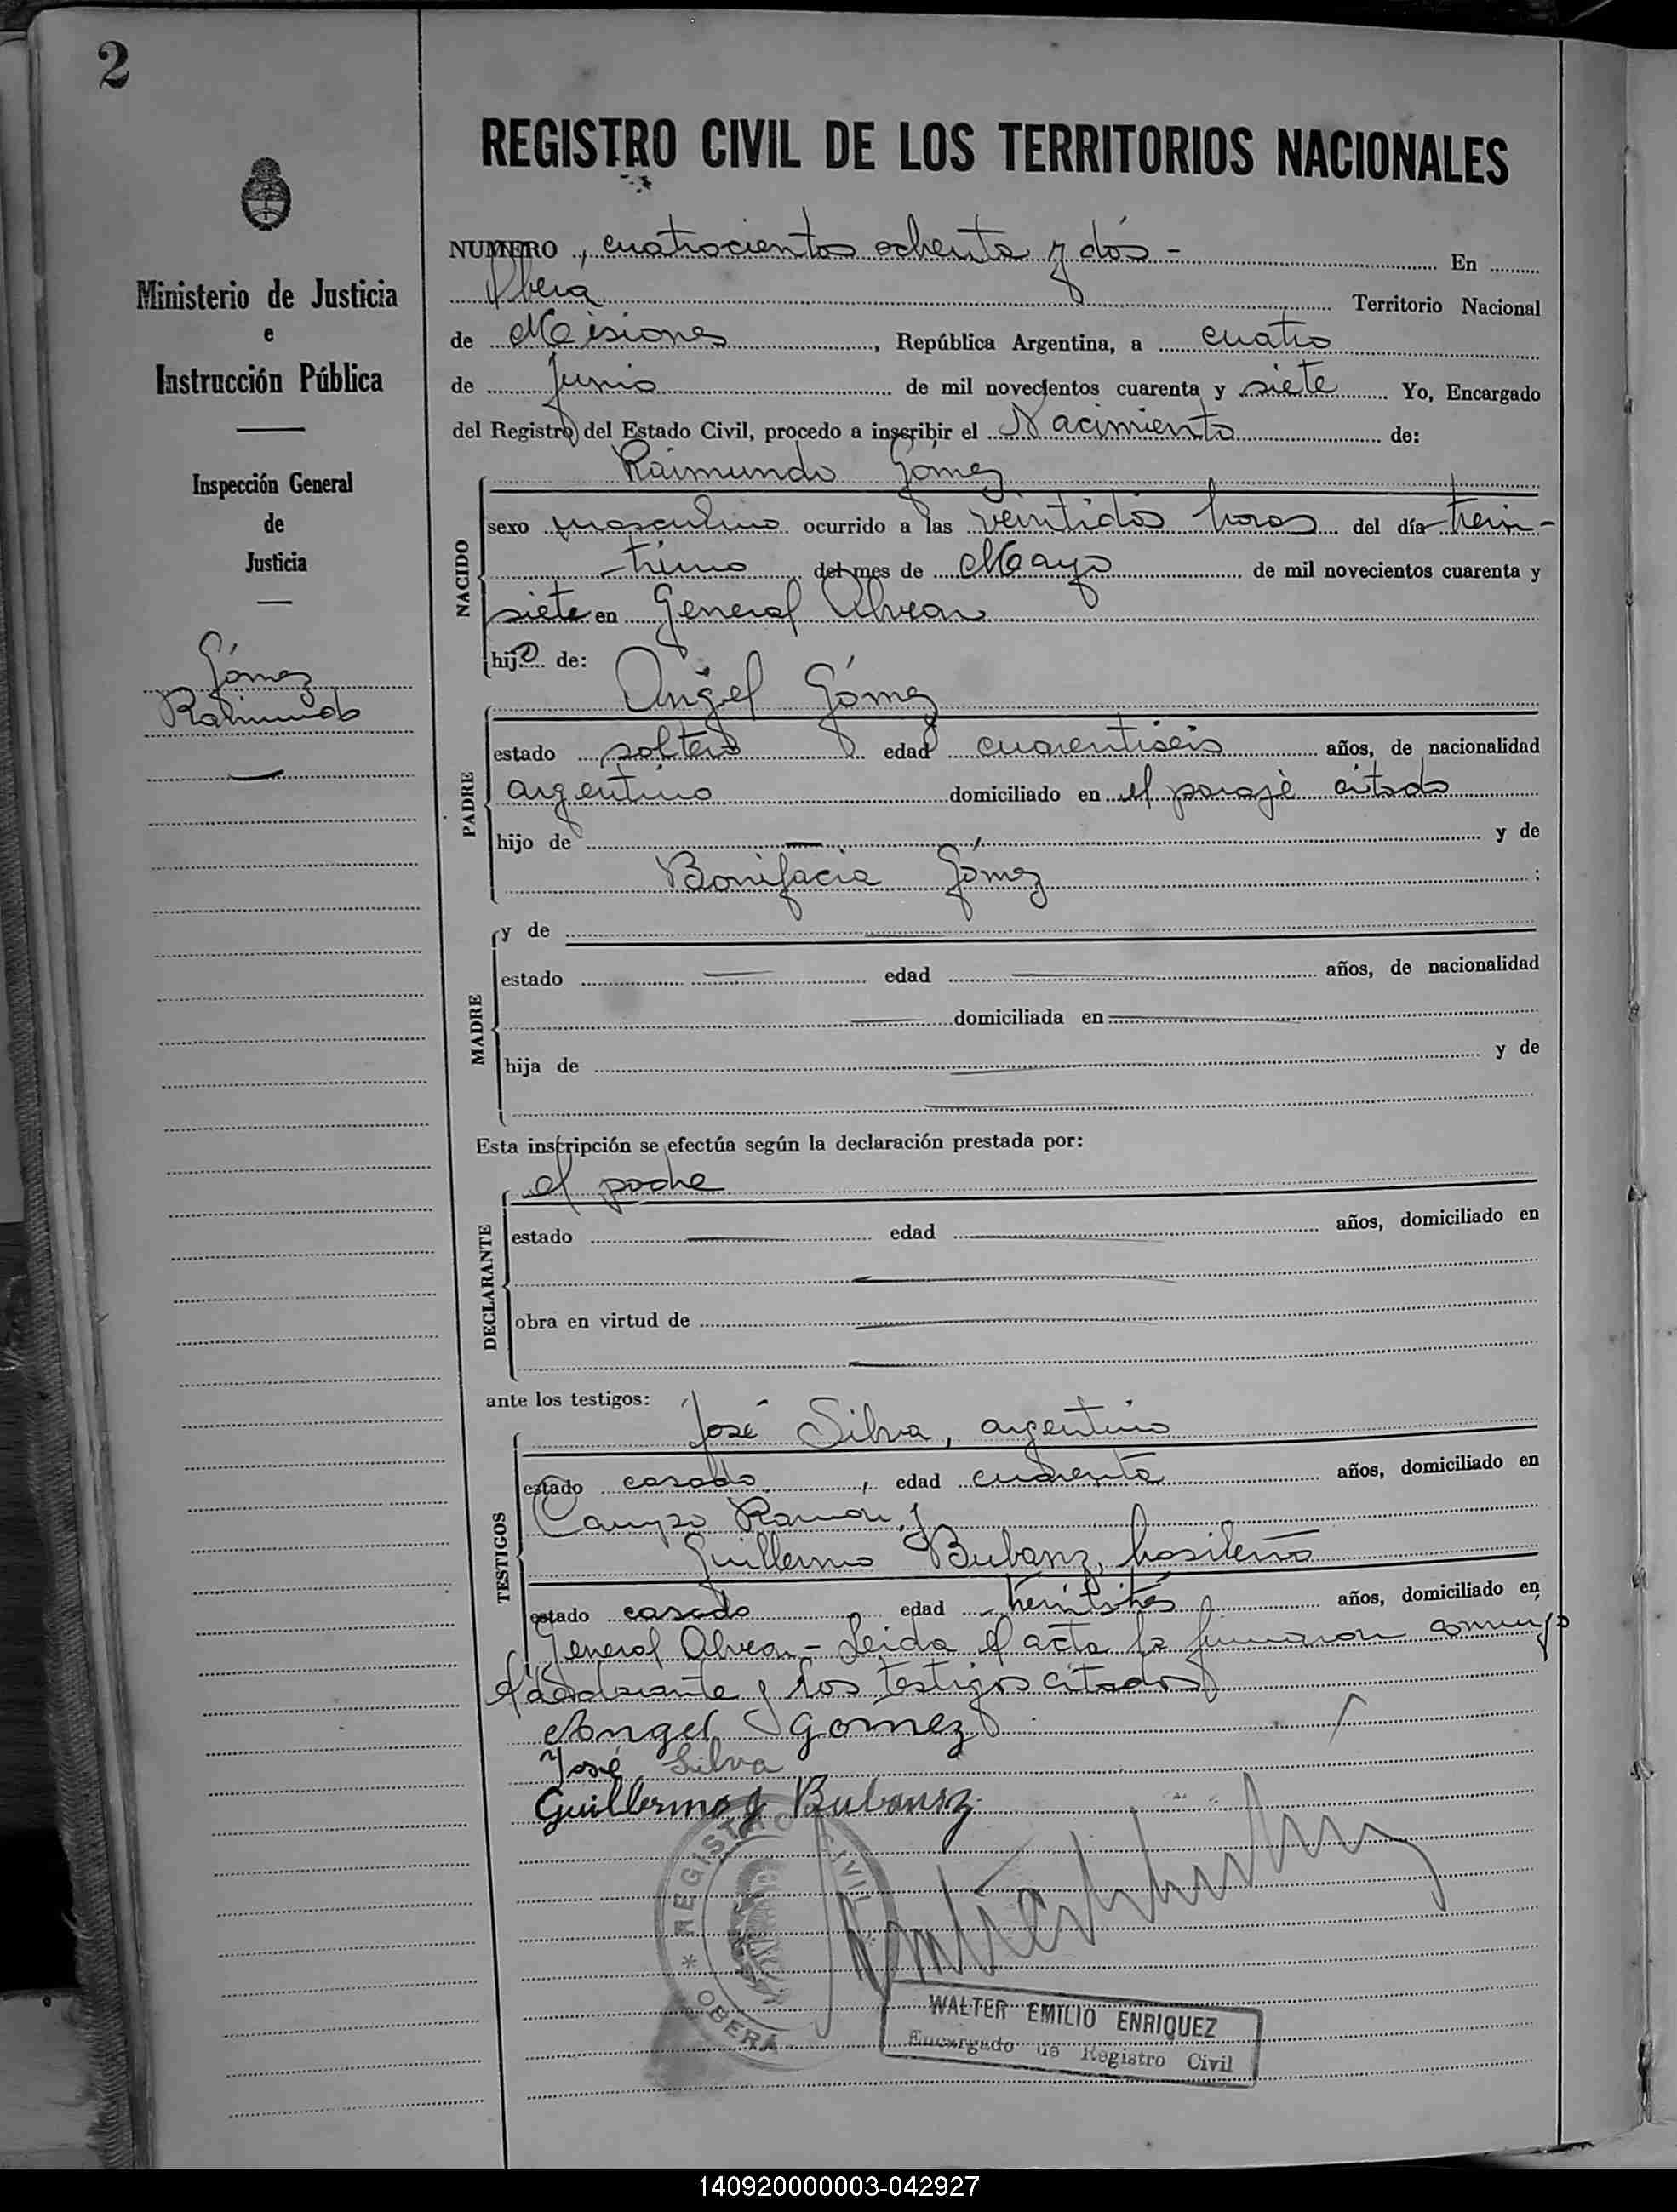 2
REGISTRO CIVIL DE LOS TERRITORIOS NACIONALES
Ministerio de Justicia
e
Instrucción Pública
Inspección General
de
Justicia
Gómez
Raimundo
NUMERO, cuatrocientos ochenta y dós - En
Oberá Territorio Nacional
de Misiones, República Argentina, a cuatro
de Junio de mil novecientos cuarenta y siete Yo, Encargado
del Registro del Estado Civil, procedo a inscribir el Nacimiento de:
Raimundo Gómez
NACIDO
sexo masculino ocurrido a las veintidos horas del día trein-
tiuno del mes de Mayo de mil novecientos cuarenta y
siete en General Alvear
hijo de:
Angel Gómez
PADRE
estado soltero edad cuarentiseis años, de nacionalidad
argentino domiciliado en el paraje citado
hijo de y de
Bonifacia Gómez ;
MADRE
y de
estado edad años, de nacionalidad
domiciliada en
hija de y de
Esta inscripción se efectúa según la declaración prestada por:
el padre
DECLARANTE
estado edad años, domiciliado en
obra en virtud de
ante los testigos:
José Silva, argentino
TESTIGOS
estado casado, edad cuarenta años, domiciliado en
Campo Ramon, y
Guillermo Bubanz, brasileño
estado casado edad treintitrés años, domiciliado en
General Alvear - Leida el acta la firmaron conmigo
el declarante y los testigos citados
Angel gomez
José Silva
Guillermo Bubansz
REGISTRO CIVIL
* OBERÁ
WALTER EMILIO ENRIQUEZ
Encargado de Registro Civil
140920000003-042927